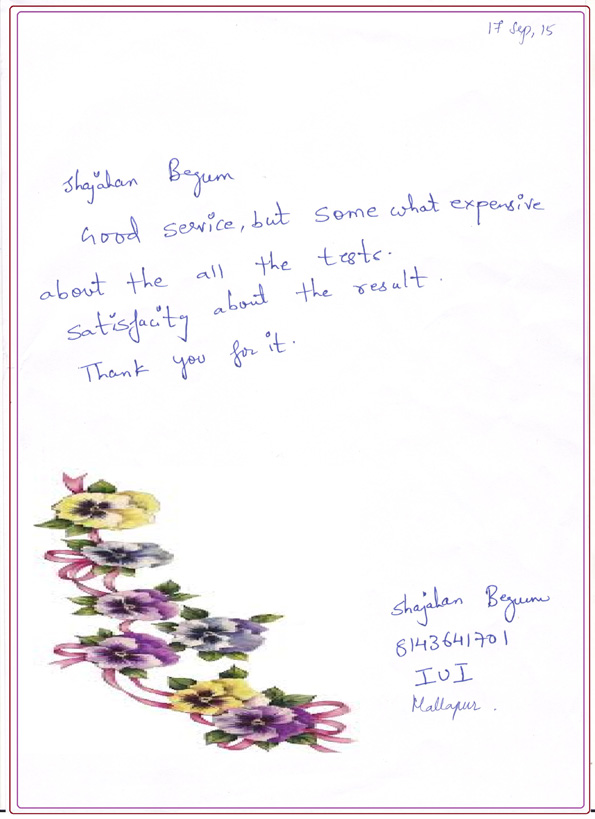 17 Sep, 15
Shajahan Begum
Good service, but some what expensive
about the all the tests.
satisfacity about the result.
Thank you for it.
Shajahan Begum
8143641701
IUI
Mallapur.